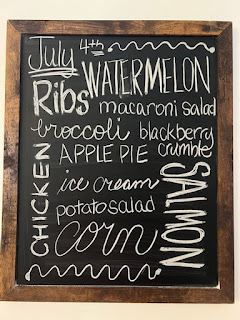 July 4th
Ribs WATERMELON
macaroni salad
broccoli blackberry
APPLE PIE crumble
CHICKEN
ice cream
potato salad
corn
SALMON